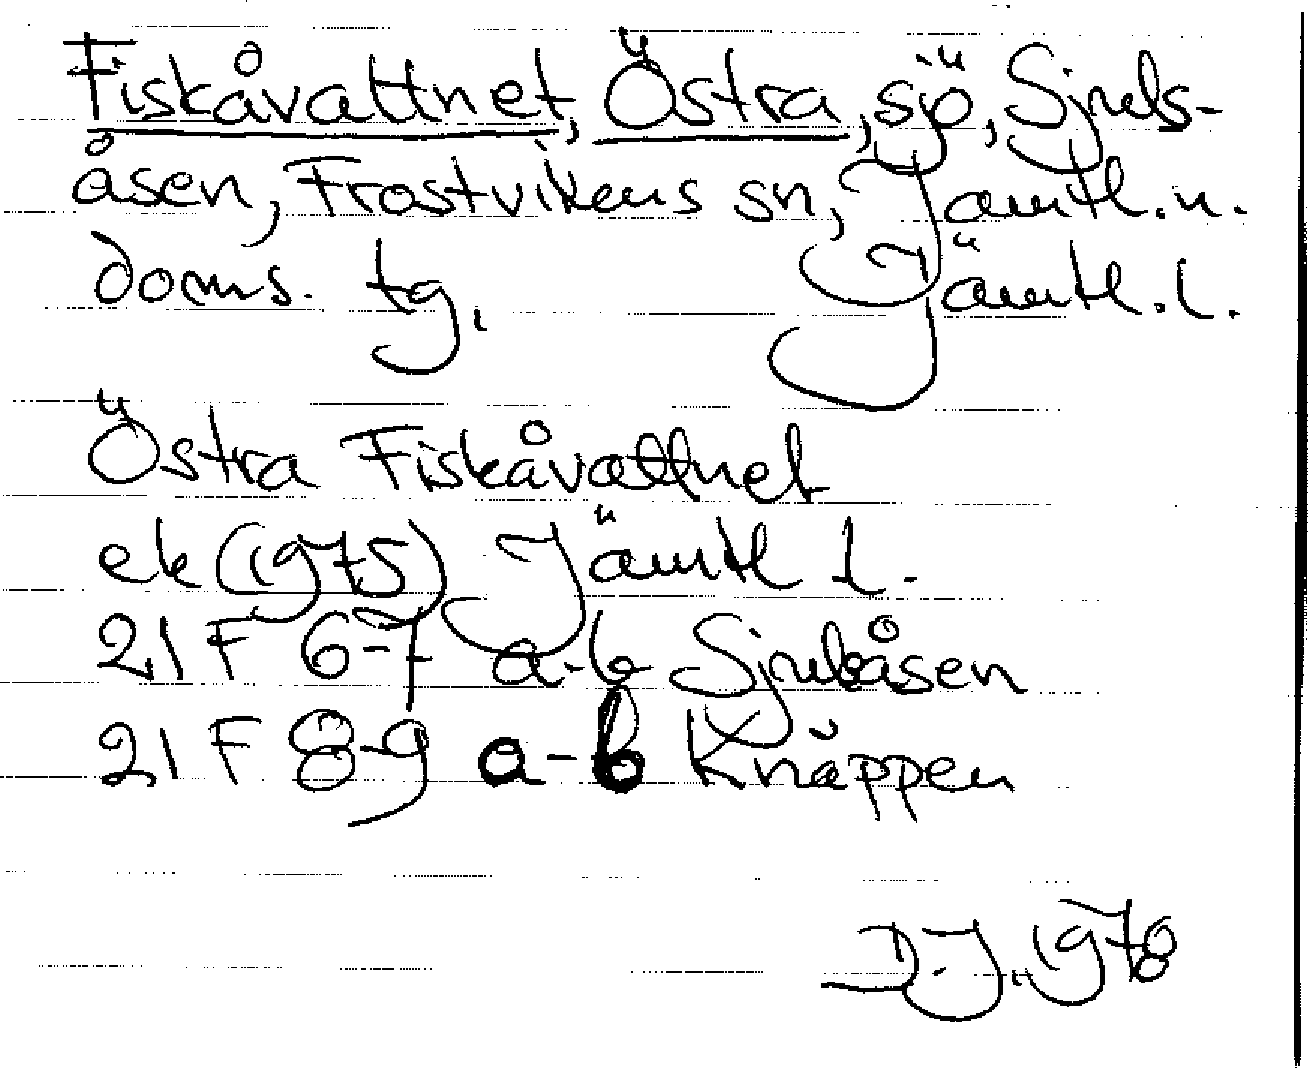 Fiskåvattnet, Östra, sjö, Sjuls-
åsen, Frostvikens sn, Jämtl. n.
doms. tg. Jämtl. l.
Östra Fiskåvattnet
ek (1975) Jämtl l.
21 F 6-7 a-b Sjulsåsen
21 F 8-9 a-b Knäppen
D.J. 1978